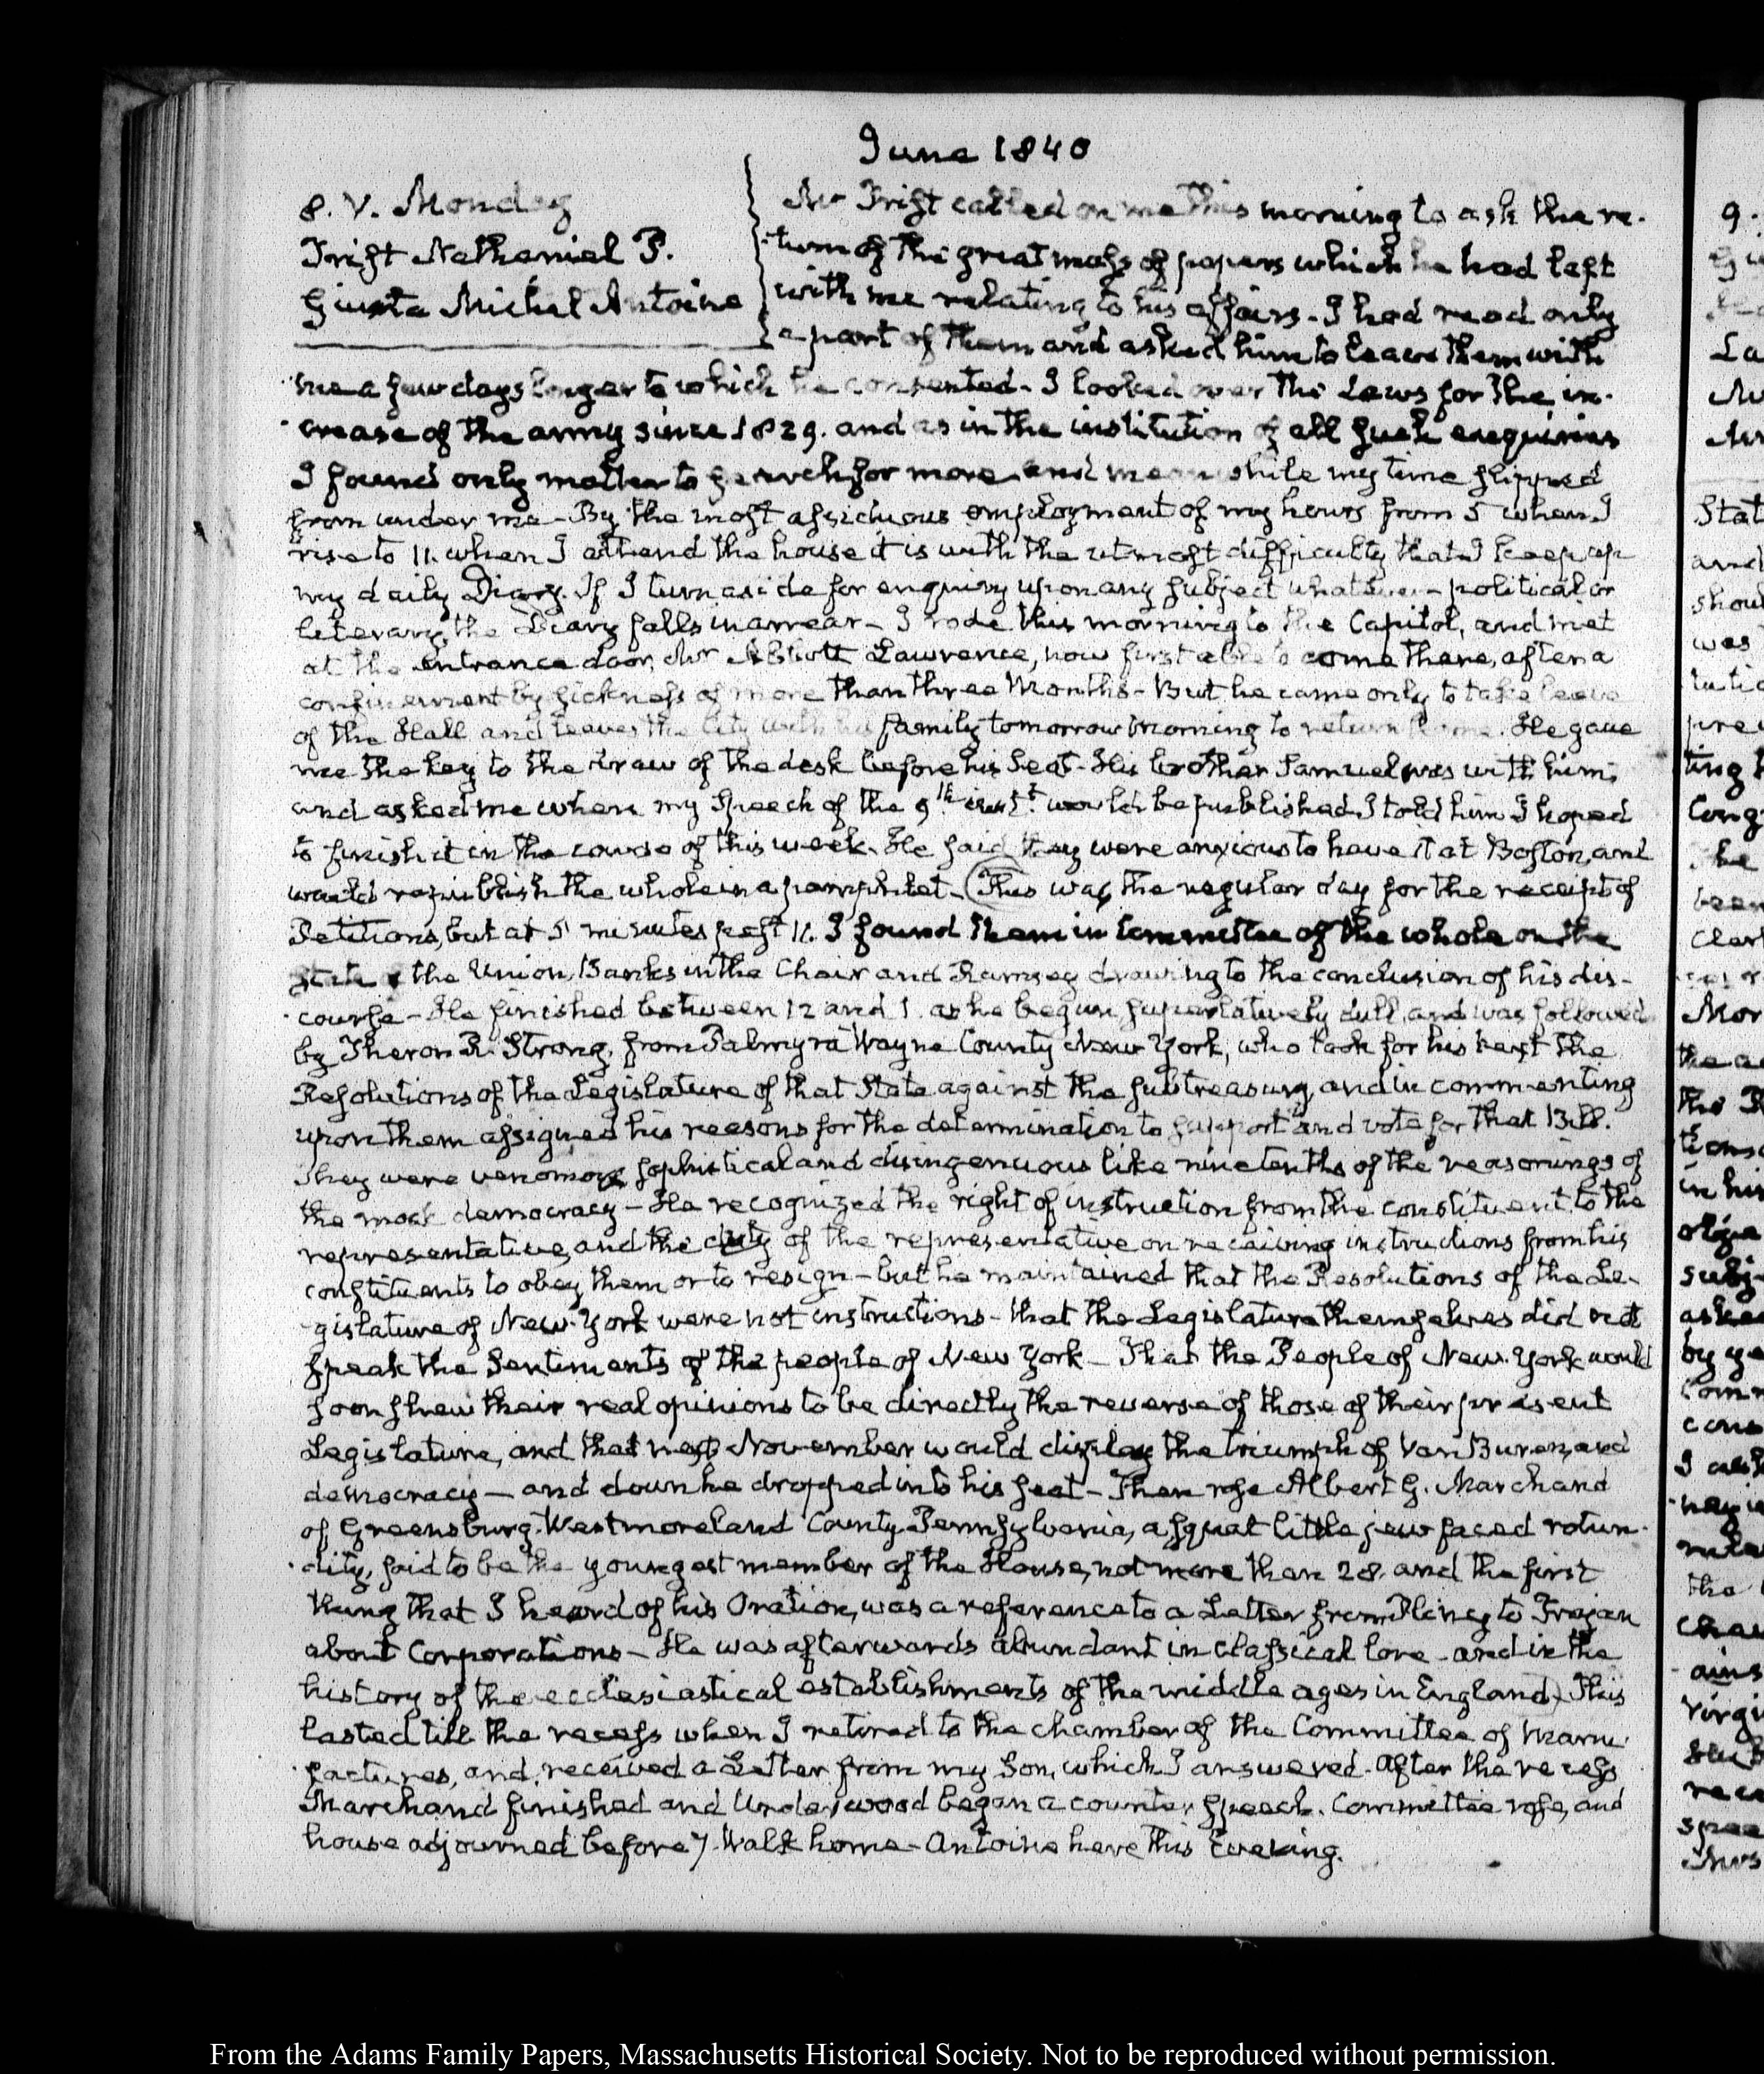 June 1840
8. V. Monday
Trist Nathaniel P.
Giusta Michel Antoine
Mr Trist called on me this morning to ask the re-
turn of the great mass of papers which he had left
with me relating to his affairs. I had read only
a part of them and asked him to leave them with
me a few days longer to which he consented. I looked over the Laws for the in-
crease of the army since 1829. and as in the institution of all such enquiries
I found only matter to search for more and mean while my time slipped
from under me. By the most assiduous employment of my hours from 5 when I
rise to 11. when I attend the house it is with the utmost difficulty that I keep up
my daily Diary. If I turn aside for enquiry upon any subject whatever – political or
literary, the Diary falls in arrear – I rode this morning to the Capitol, and met
at the entrance door, Mr Abbott Lawrence, now first able to come there, after a
confinement by sickness of more than three Months – But he came only to take leave
of the Hall and leaves the City with his family tomorrow morning to return home. He gave
me the key to the draw of the desk before his seat. His brother Samuel was with him;
and asked me when my Speech of the 5th inst. would be published. I told him I hoped
to finish it in the course of this week. He said they were anxious to have it at Boston, and
would republish the whole in a pamphlet. (This was the regular day for the receipt of
Petitions, but at 5 minutes past 11. I found them in Committee of the whole on the
State of the Union, Banks in the Chair and Ramsey drawing to the conclusion of his dis-
course – He finished between 12 and 1. as he begun superlatively dull, and was followed
by Theron R. Strong, from Palmyra Wayne County New York, who took for his text the
Resolutions of the Legislature of that State against the subtreasury, and in commenting
upon them assigned his reasons for the determination to support and vote for that Bill.
They were venomous sophistical and disingenuous like nine tenths of the reasonings of
the mock democracy – He recognized the right of instruction from the constituent to the
representative, and the duty of the representative on receiving instructions from his
constituents to obey them or to resign – but he maintained that the Resolutions of the Le-
gislature of New-York were not instructions – that the Legislature themselves did not
speak the Sentiments of the people of New York – That the People of New-York would
soon shew their real opinions to be directly the reverse of those of their present
Legislature, and that next November would display the triumph of Van Buren, and
democracy – and down he dropped into his seat – Then rose Albert G. Marchand
of Greensburg. Westmoreland County Pennsylvania, a squat little jew faced rotun-
dity, said to be the youngest member of the House, not more than 28. and the first
thing that I heard of his Oration, was a reference to a Letter from Pliny to Trajan
about Corporations – He was afterwards abundant in classical lore – and in the
history of the ecclesiastical establishments of the middle ages in England) This
lasted till the recess when I retired to the chamber of the Committee of Manu-
factures, and received a Letter from my Son, which I answered. After the recess
Marchand finished and Underwood began a counter speech. Committee rose, and
house adjourned before 7. Walk home – Antoine here this Evening.
9.
From the Adams Family Papers, Massachusetts Historical Society. Not to be reproduced without permission.